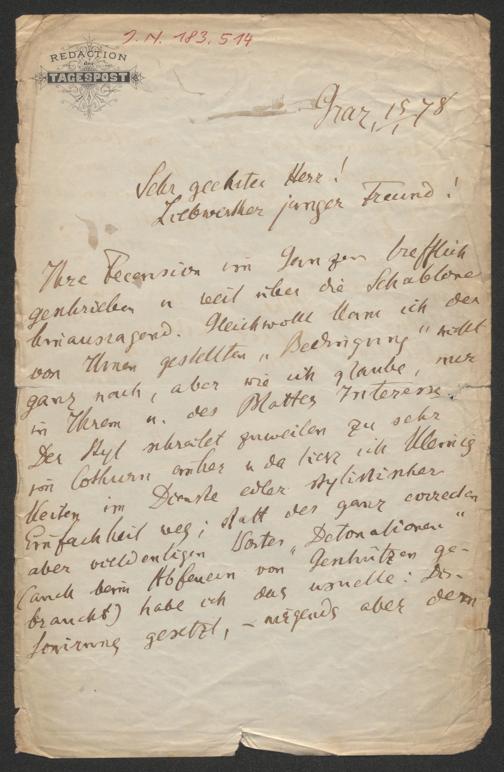 J. N. 183.514
REDACTION
der
TAGESPOST
Graz, 15/1 78
Sehr geehrter Herr!
Liebwerther junger Freund!
Ihre Recension im Ganzen trefflich
geschrieben u weit über die Schablone
hinausragend. Gleichwohl kam ich der
von Ihnen gestellten „Bedingung" nicht
ganz nach, aber wie ich glaube, nur
in Ihrem u. des Blattes Interesse.
Der Styl schreitet zuweilen zu sehr
im Cothurn einher u da liess ich Kleinig
keiten im Dienste edler stylistischer
Einfachheit weg; statt des ganz correcten
aber vieldeutigen Wortes „Detonationen"
(auch beim Abfeuern von Geschützen ge-
braucht) habe ich das usuelle: Dis-
tonirung gesetzt, – nirgends aber dem